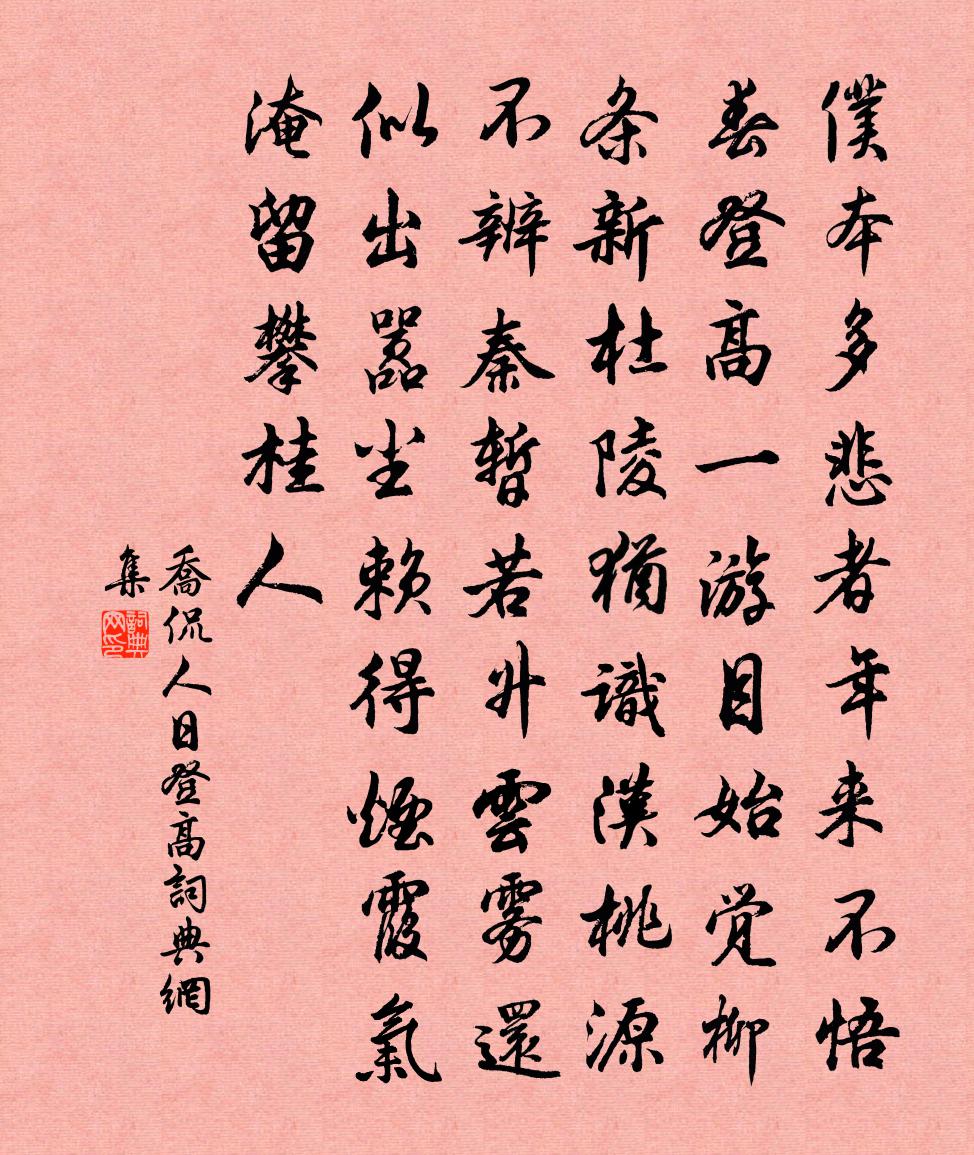 僕本多悲者年来不悟
春登高一游目始覚柳
条新杜陵猶識漢桃源
不辨秦暫若升雲雾還
似出嚣尘賴得煙霞氣
淹留攀桂人
喬侃人日登高詞典網
集
詞典网印